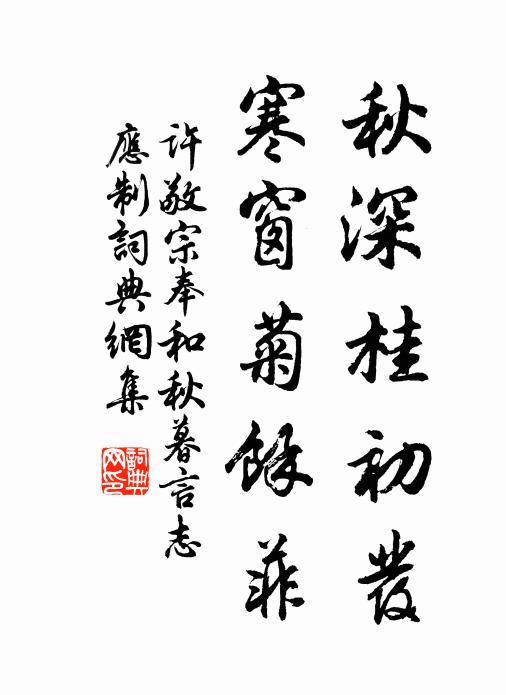 秋深桂初發
寒窗菊餘菲
許敬宗奉和秋暮言志
應制詞典網集
詞典
网印